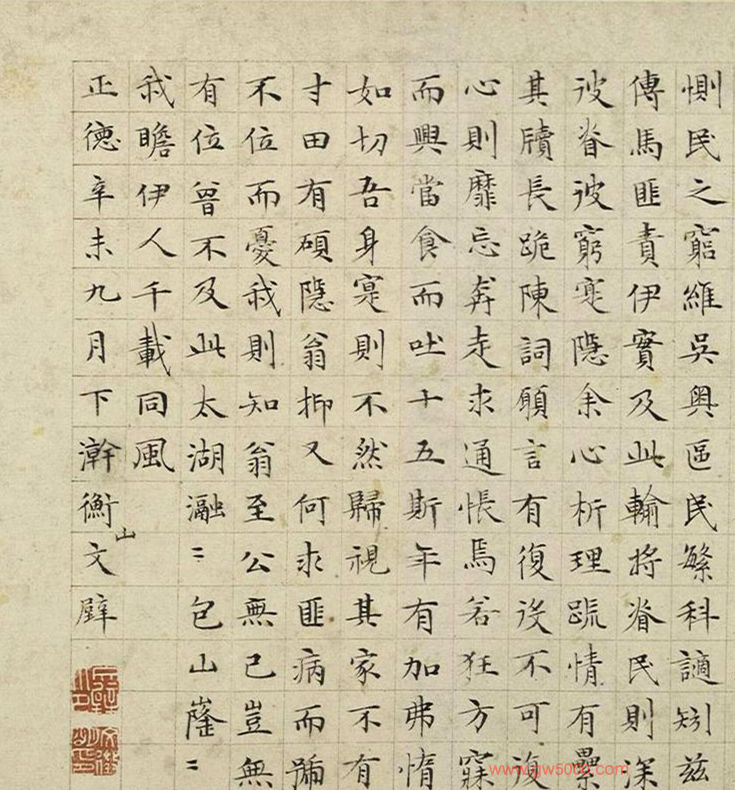 惻民之窮維吳輿區民繁科讁矧兹
傳馬匪責伊實及此輸将眷民則深
彼眷彼窮寔隱余心析理䟽情有纍
其牘長跪陳詞願言有復设不可復
心則靡忘奔走求通悵焉若狂方寐
而興當食而吐十五斯年有加弗惰
如切吾身寔則不然歸視其家不有
寸田有碩隱翁抑又何求匪病而
不位而憂我則知翁至公無已豈無
有位曾不及此太湖瀜〻包山嶐〻
我瞻伊人千載同風
正德辛未九月下澣衡山文壁
www.yw5000.com